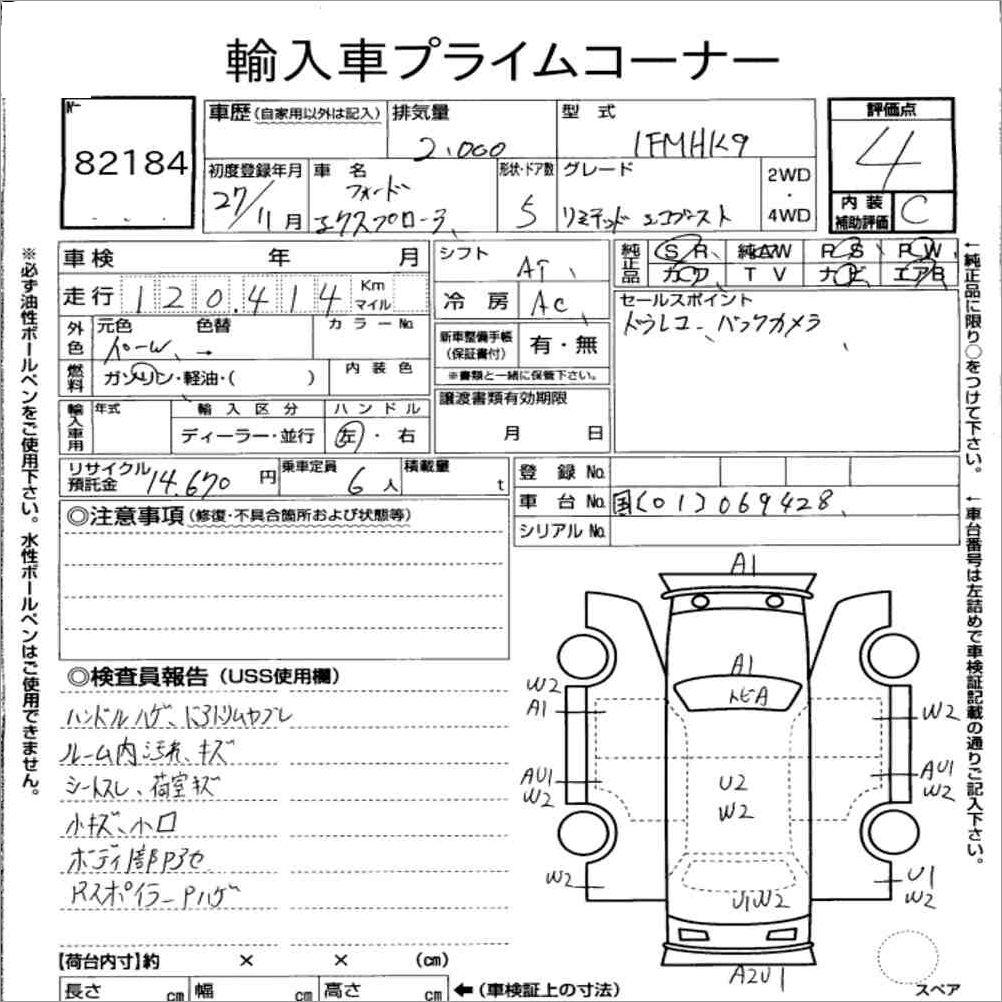 輸入車プライムコーナー
No
82184
車歴 (自家用以外は記入) 排気量 型式 評価点
2.000 1FMHK9 4
初度登録年月 車名 形状・ドア数 グレード 2WD・4WD
27/11月 フォード エクスプローラ 5 リミテッド エコブースト
内装補助評価 C
車検 年 月 シフト AT 純正品 SR 純AW PS PW
カワ TV ナビ エアB
走行 120.414 Km マイル 冷房 AC セールスポイント
ドラレコ、バックカメラ
外色 元色 色替 カラーNo. 新車整備手帳 (保証書付) 有・無
パールW →
※書類と一緒に保管下さい。
燃料 ガソリン・軽油・( ) 内装色
譲渡書類有効期限
月 日
輸入車用 年式 輸入区分 ハンドル
ディーラー・並行 左・右
リサイクル預託金 14.670円 乗車定員 6人 積載量 t
登録No.
車台No. 国(01)069428
シリアルNo.
◎注意事項(修復・不具合箇所および状態等)
◎検査員報告(USS使用欄)
ハンドルハゲ、ドアトリムヤブレ
ルーム内汚れ、キズ
シートスレ、荷室キズ
小キズ、小凹
R スポイラーPハゲ
A1
A1
トビA
W2
A1
W2
AU1
W2
U2
W2
AU1
W2
W2
U1W2
U1
W2
A2U1
スペア
【荷台内寸】約 × × (cm)
長さ cm 幅 cm 高さ cm ←(車検証上の寸法)
※必ず油性ボールペンをご使用下さい。水性ボールペンはご使用できません。
←純正品に限り○をつけて下さい。
←車台番号は左詰めで車検証記載の通りご記入下さい。